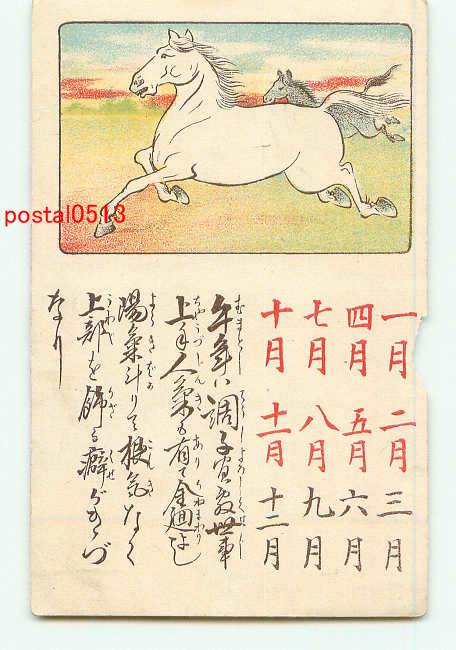 一月 二月 三月
四月 五月 六月
七月 八月 九月
十月 十一月 十二月
午年ハ調子宜敷世事
上手人氣も有て金廻よし
陽氣斗りて根気なく
上部を飾る癖がもつ
なり
postal0513